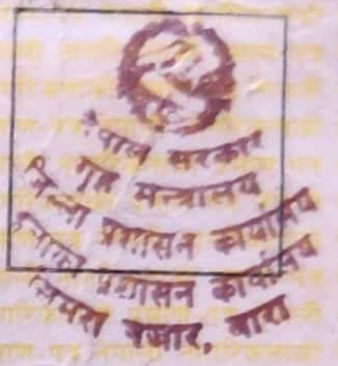 नेपाल सरकार
गृह मन्त्रालय
जिल्ला प्रशासन कार्यालय
इलाका प्रशासन कार्यालय
सिमरा बजार, बारा